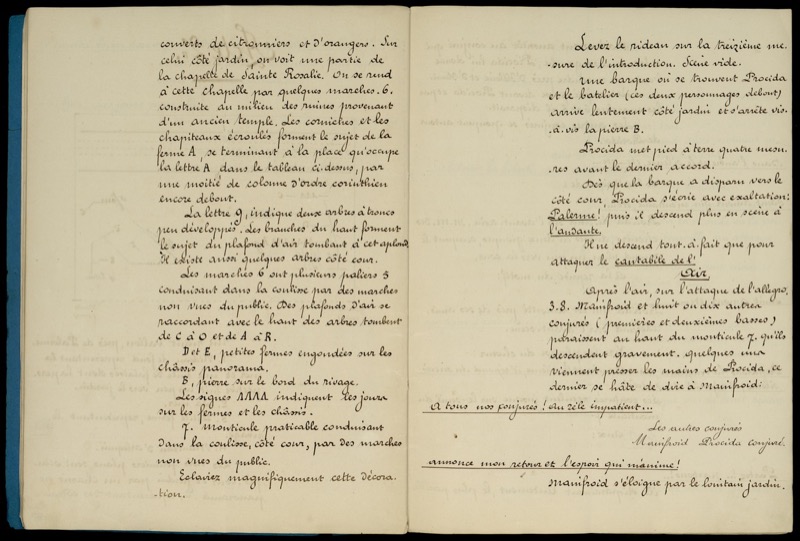 couverts de citronniers et d'orangers. Sur
celui côté jardin, on voit une partie de
la chapelle de Sainte Rosalie. On se rend
à cette chapelle par quelques marches. 6.
construite au milieu des ruines provenant
d'un ancien temple. Les corniches et les
chapiteaux écroulés forment le sujet de la
ferme A, se terminant à la place qu'occupe
la lettre A dans le tableau ci-dessus, par
une moitié de colonne d'ordre corinthien
encore debout.
La lettre 9, indique deux arbres à troncs
peu développés. Les branches du haut forment
le sujet du plafond d'air tombant à cet aplomb.
Il existe aussi quelques arbres côté cour.
Les marches 6 ont plusieurs paliers 3
conduisant dans la coulisse par des marches
non vues du public. Des plafonds d'air se
raccordant avec le haut des arbres tombent
de C à O et de A à R.
D et E, petites fermes engondées sur les
châssis panorama.
B, pierre sur le bord du rivage.
Les signes ΛΛΛΛ indiquent les jours
sur les fermes et les châssis.
7. monticule praticable conduisant
dans la coulisse, côté cour, par des marches
non vues du public.
Eclairez magnifiquement cette décora-
-tion.
Levez le rideau sur la treizième me-
-sure de l'introduction. Scène vide.
Une barque où se trouvent Procida
et le batelier (ces deux personnages debout)
arrive lentement côté jardin et s'arrête vis-
-à-vis la pierre B.
Procida met pied à terre quatre mesu-
-res avant le dernier accord.
Dès que la barque a disparu vers le
côté cour, Procida s'écrie avec exaltation:
Palerme! puis il descend plus en scène à
l'andante.
Il ne descend tout-à-fait que pour
attaquer le cantabile de l'
Air,
Après l'air, sur l'attaque de l'allegro,
3.8. Manifroid et huit ou dix autres
conjurés (premières et deuxièmes basses)
paraissent au haut du monticule 7. qu'ils
descendent gravement. quelques uns
viennent presser les mains de Procida, ce
dernier se hâte de dire à Manifroid:
A tous nos conjurés! au zèle impatient...
Les autres conjurés
Manifroid Procida conjuré.
annonce mon retour et l'espoir qui m'anime!
Manifroid s'éloigne par le lointain jardin.